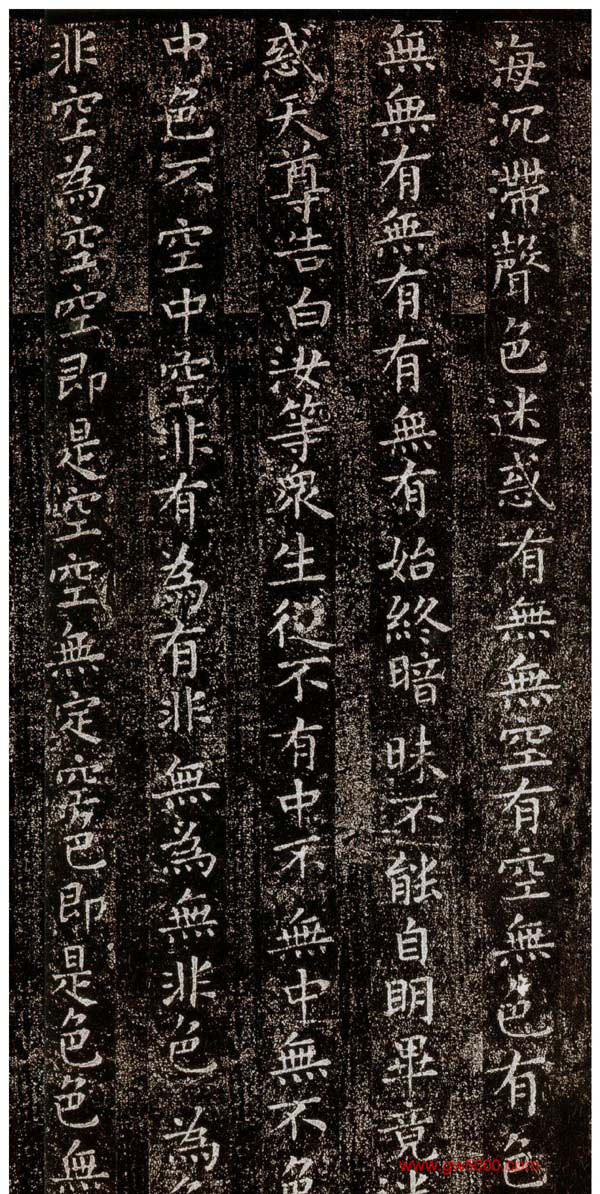 海沉滯聲色迷惑有無無空有空無色有色
無無有無有有無有始終暗昧不能自眀畢竟迷
惑天尊告白汝等衆生從不有中不無中無不色
中色不空中空非有為有非無為無非色為色
非空為空空即是空空無定空色即是色色無
www.gw5000.com